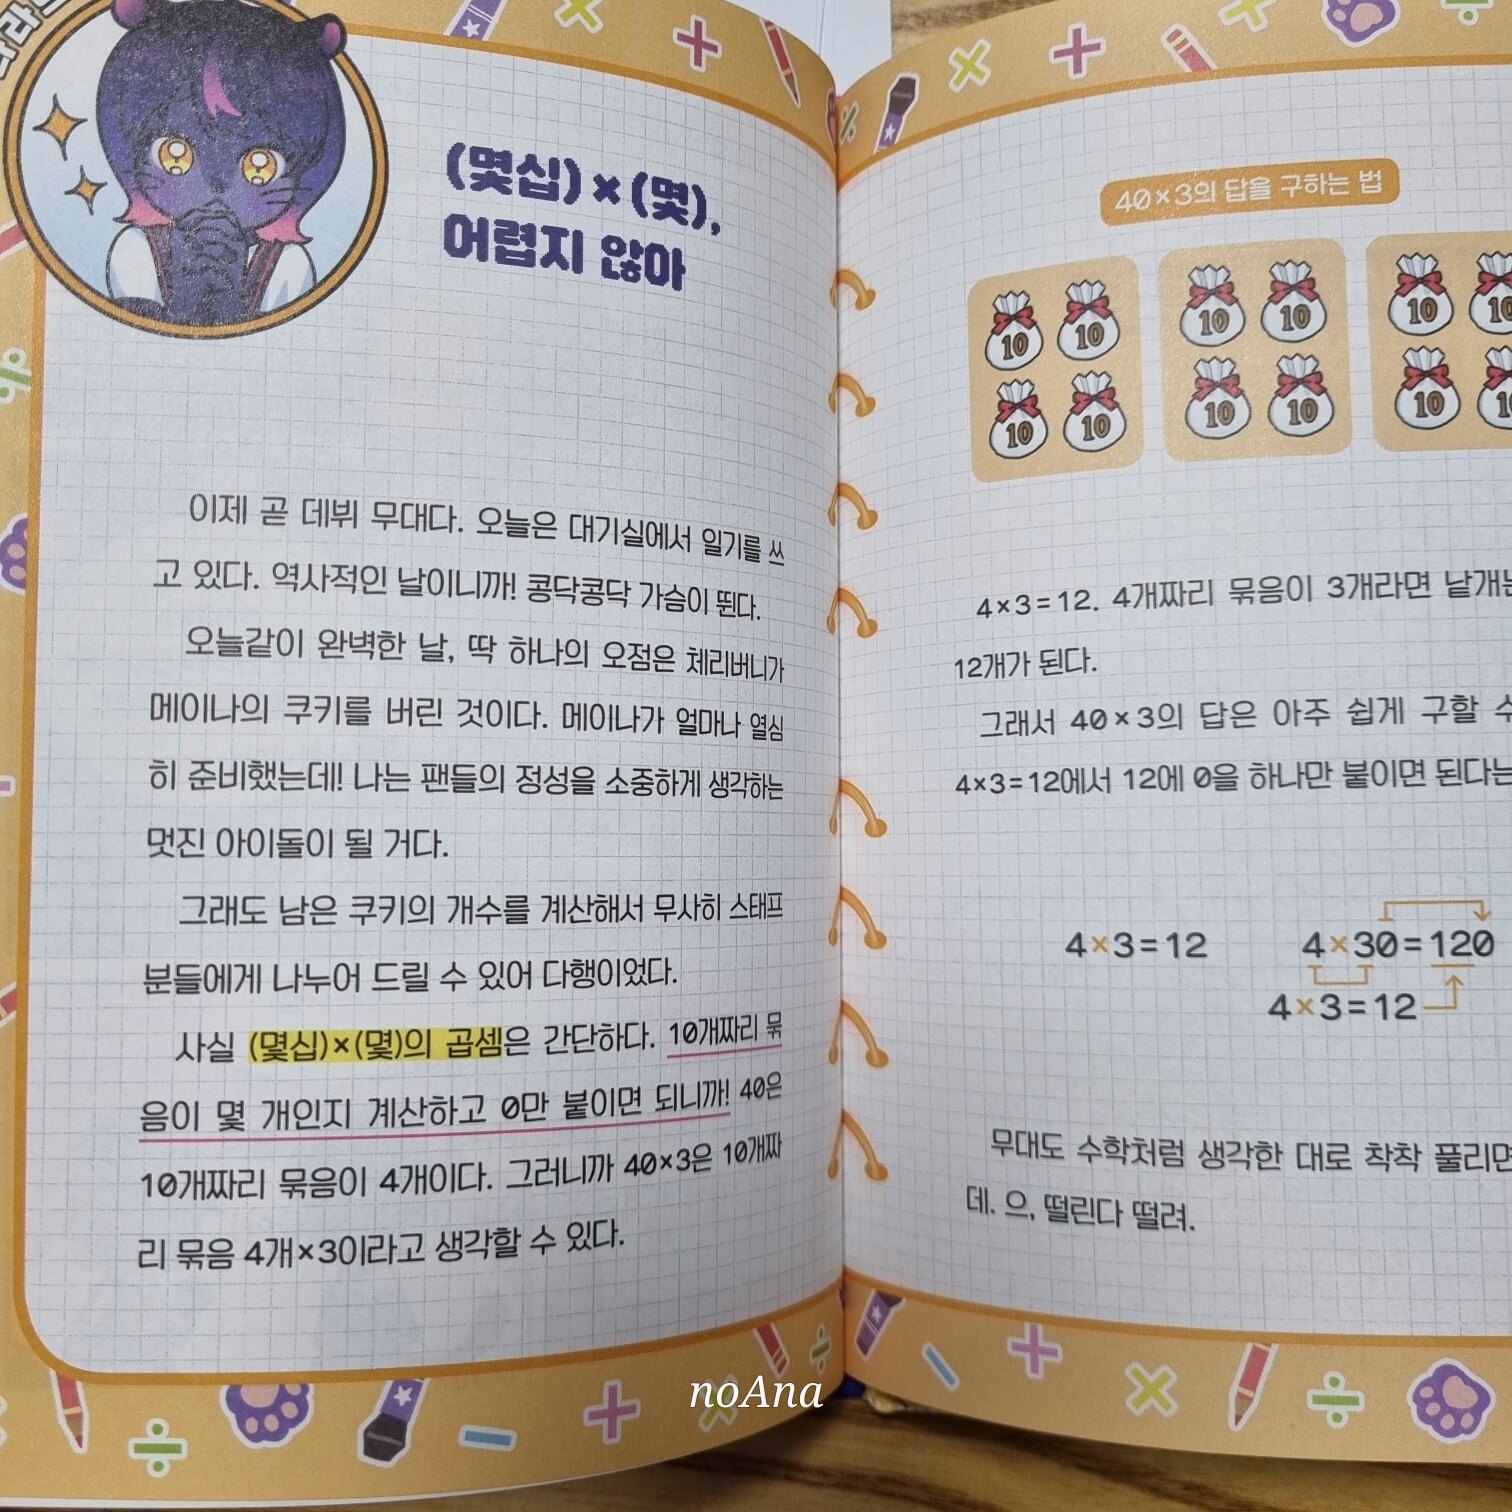 (몇십)×(몇),
어렵지 않아
이제 곧 데뷔 무대다. 오늘은 대기실에서 일기를 쓰
고 있다. 역사적인 날이니까! 콩닥콩닥 가슴이 뛴다.
오늘같이 완벽한 날, 딱 하나의 오점은 체리버니가
메이나의 쿠키를 버린 것이다. 메이나가 얼마나 열심
히 준비했는데! 나는 팬들의 정성을 소중하게 생각하는
멋진 아이돌이 될 거다.
그래도 남은 쿠키의 개수를 계산해서 무사히 스태프
분들에게 나누어 드릴 수 있어 다행이었다.
사실 (몇십)×(몇)의 곱셈은 간단하다. 10개짜리 묶
음이 몇 개인지 계산하고 0만 붙이면 되니까! 40은
10개짜리 묶음이 4개이다. 그러니까 40×3은 10개짜
리 묶음 4개×3이라고 생각할 수 있다.
40×3의 답을 구하는 법
10 10 10 10 10
10 10 10 10 10
4×3=12. 4개짜리 묶음이 3개라면 낱개는
12개가 된다.
그래서 40×3의 답은 아주 쉽게 구할 수
4×3=12에서 12에 0을 하나만 붙이면 된다는
4×3=12
4×30=120
4×3=12
무대도 수학처럼 생각한 대로 착착 풀리면
데. 으, 떨린다 떨려.
noAna